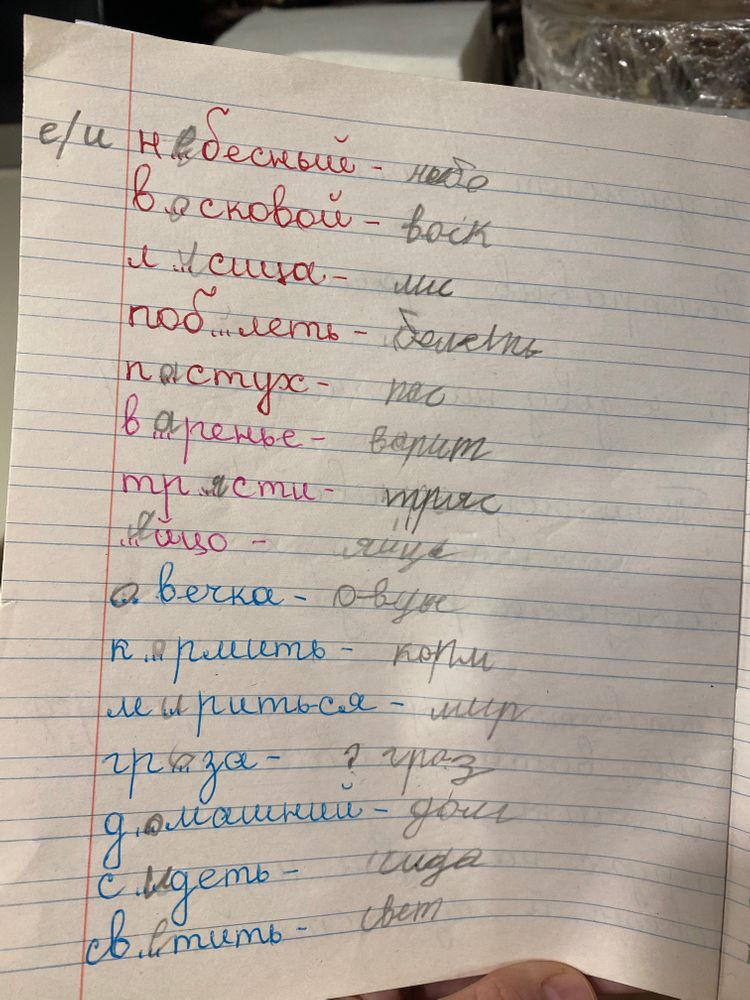 е/и небесный - небо
восковой - воск
лисица - лис
поб...леть - болеть
пастух - пас
варенье - варит
трясти - тряс
яйцо - яйца
овечка - овцы
кормить - корм
мириться - мир
гроза - ? гроз
домашний - дом
сидеть - сида
светить - свет